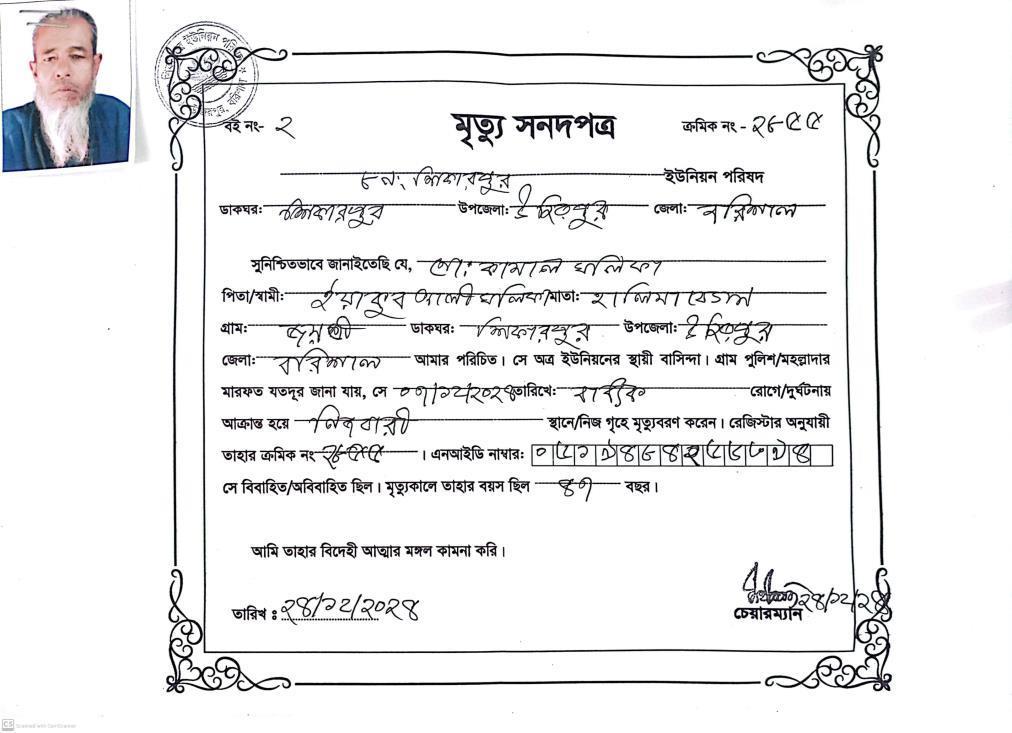 বই নং- ২ মৃত্যু সনদপত্র ক্রমিক নং -
৮নং শিকারপুর ইউনিয়ন পরিষদ
ডাকঘর: শিকারপুর উপজেলা: উজিরপুর জেলা: বরিশাল
সুনিশ্চিতভাবে জানাইতেছি যে, মো: কামাল খলিফা
পিতা/স্বামী: ইয়াকুব আলী খলিফা মাতা: হালিমা বেগম
গ্রাম: ডাকঘর: শিকারপুর উপজেলা: উজিরপুর
জেলা: বরিশাল আমার পরিচিত। সে অত্র ইউনিয়নের স্থায়ী বাসিন্দা। গ্রাম পুলিশ/মহল্লাদার
মারফত যতদূর জানা যায়, সে ০৭/১২/২০২৪ তারিখে: রোগে/দুর্ঘটনায়
আক্রান্ত হয়ে স্থানে/নিজ গৃহে মৃত্যুবরণ করেন। রেজিস্টার অনুযায়ী
তাহার ক্রমিক নং । এনআইডি নাম্বার:
সে বিবাহিত/অবিবাহিত ছিল। মৃত্যুকালে তাহার বয়স ছিল ৪৭ বছর।
আমি তাহার বিদেহী আত্মার মঙ্গল কামনা করি।
তারিখ : ২৪/১২/২০২৪
চেয়ারম্যান ২৪/১২/২৪
CS Scanned with CamScanner